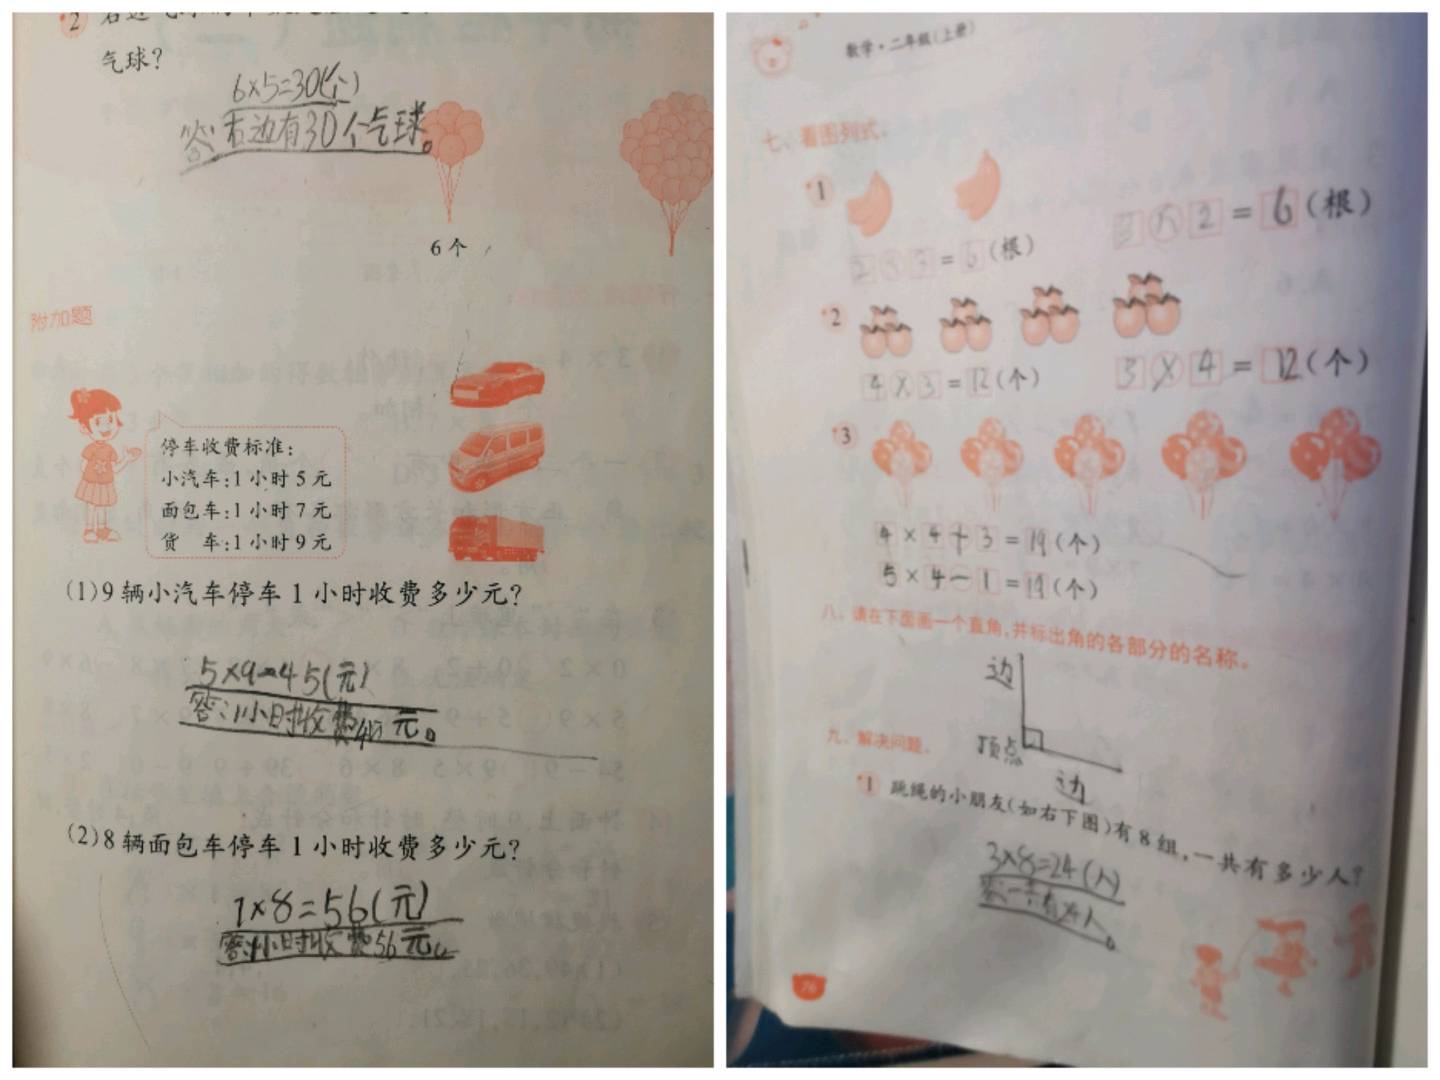 气球?
6×5=30(个)
答:右边有30个气球。
6个
附加题
停车收费标准:
小汽车:1小时5元
面包车:1小时7元
货 车:1小时9元
(1)9辆小汽车停车1小时收费多少元?
5×9=45(元)
答:1小时收费45元。
(2)8辆面包车停车1小时收费多少元?
7×8=56(元)
答:1小时收费56元。
数学·二年级(上册)
七、看图列式。
1
2×3=6(根)
3×2=6(根)
2
4×3=12(个)
3×4=12(个)
3
4×4+3=19(个)
5×4-1=19(个)
八、请在下面画一个直角,并标出角的各部分的名称。
边
顶点
边
九、解决问题。
1 跳绳的小朋友(如右下图)有8组,一共有多少人?
3×8=24(人)
答:一共有24人。
76